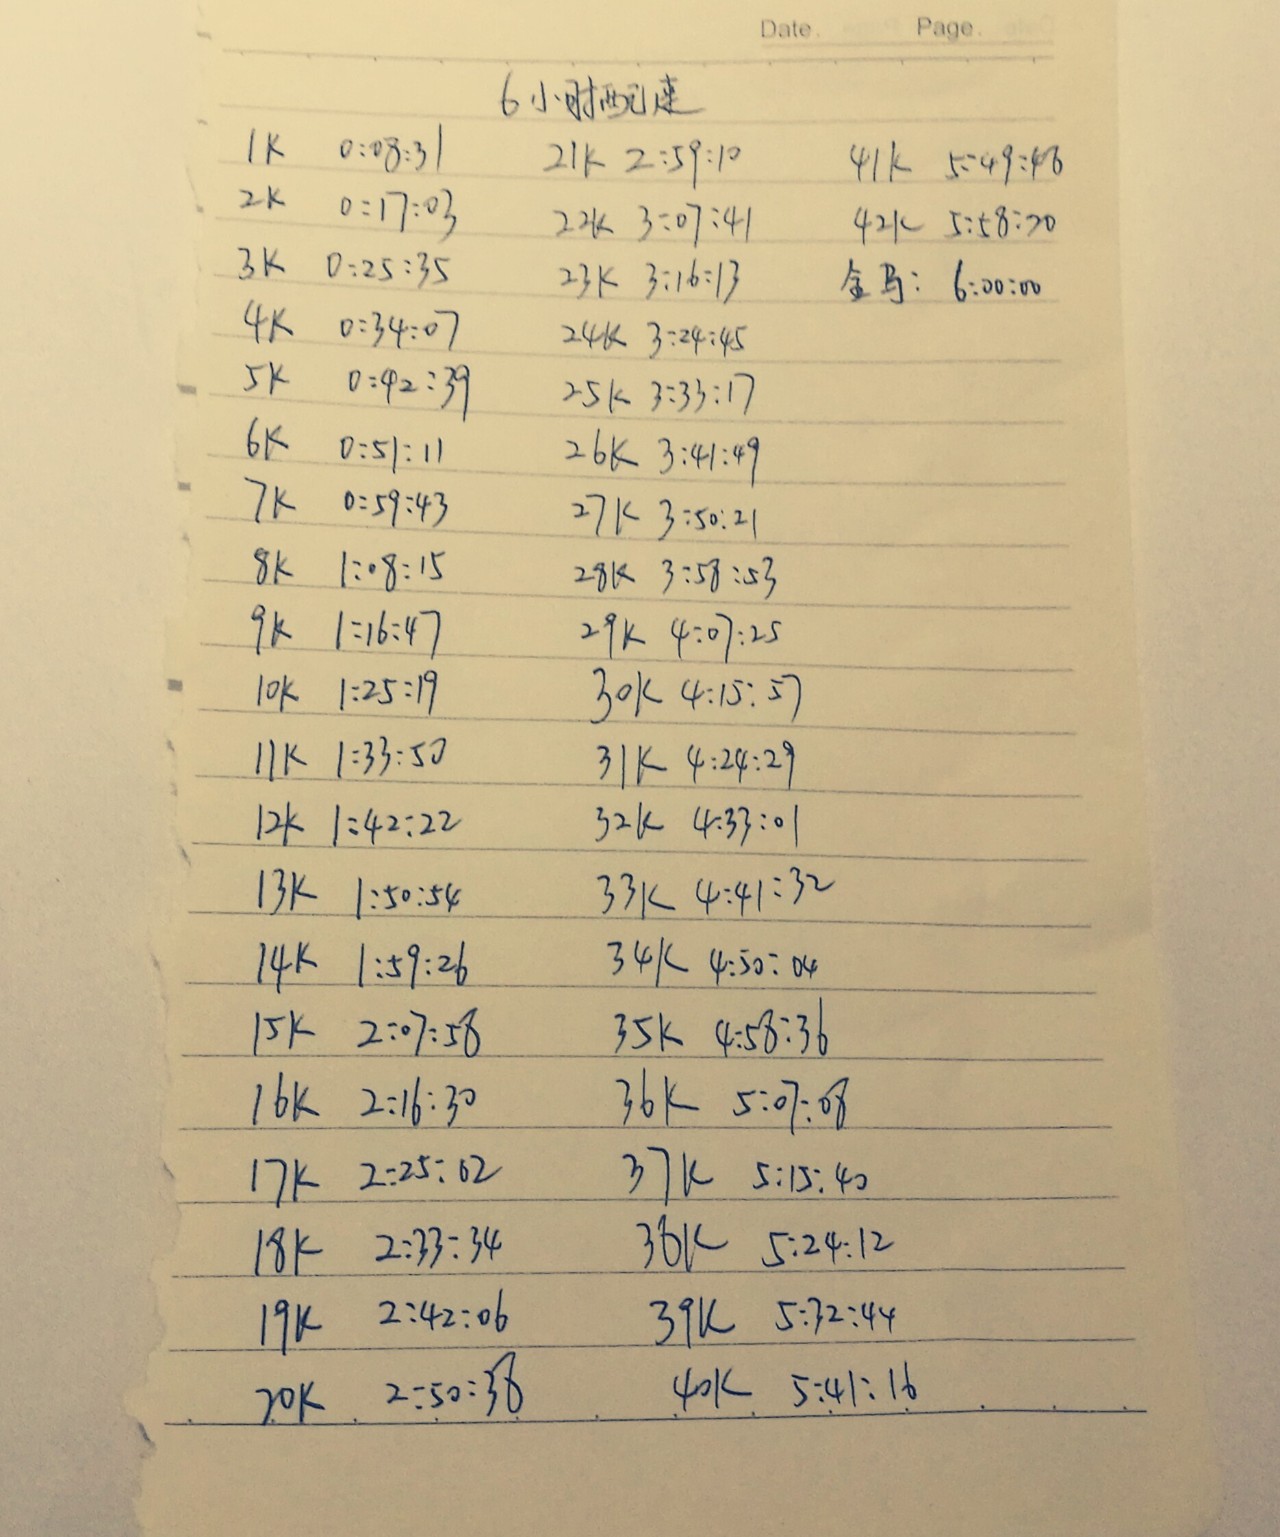 Date. Page.
6小时配速
1K 0:08:31
2K 0:17:03
3K 0:25:35
4K 0:34:07
5K 0:42:39
6K 0:51:11
7K 0:59:43
8K 1:08:15
9K 1:16:47
10K 1:25:19
11K 1:33:50
12K 1:42:22
13K 1:50:54
14K 1:59:26
15K 2:07:58
16K 2:16:30
17K 2:25:02
18K 2:33:34
19K 2:42:06
20K 2:50:38
21K 2:59:10
22K 3:07:41
23K 3:16:13
24K 3:24:45
25K 3:33:17
26K 3:41:49
27K 3:50:21
28K 3:58:53
29K 4:07:25
30K 4:15:57
31K 4:24:29
32K 4:33:01
33K 4:41:32
34K 4:50:04
35K 4:58:36
36K 5:07:08
37K 5:15:40
38K 5:24:12
39K 5:32:44
40K 5:41:16
41K 5:49:48
42K 5:58:20
全马: 6:00:00